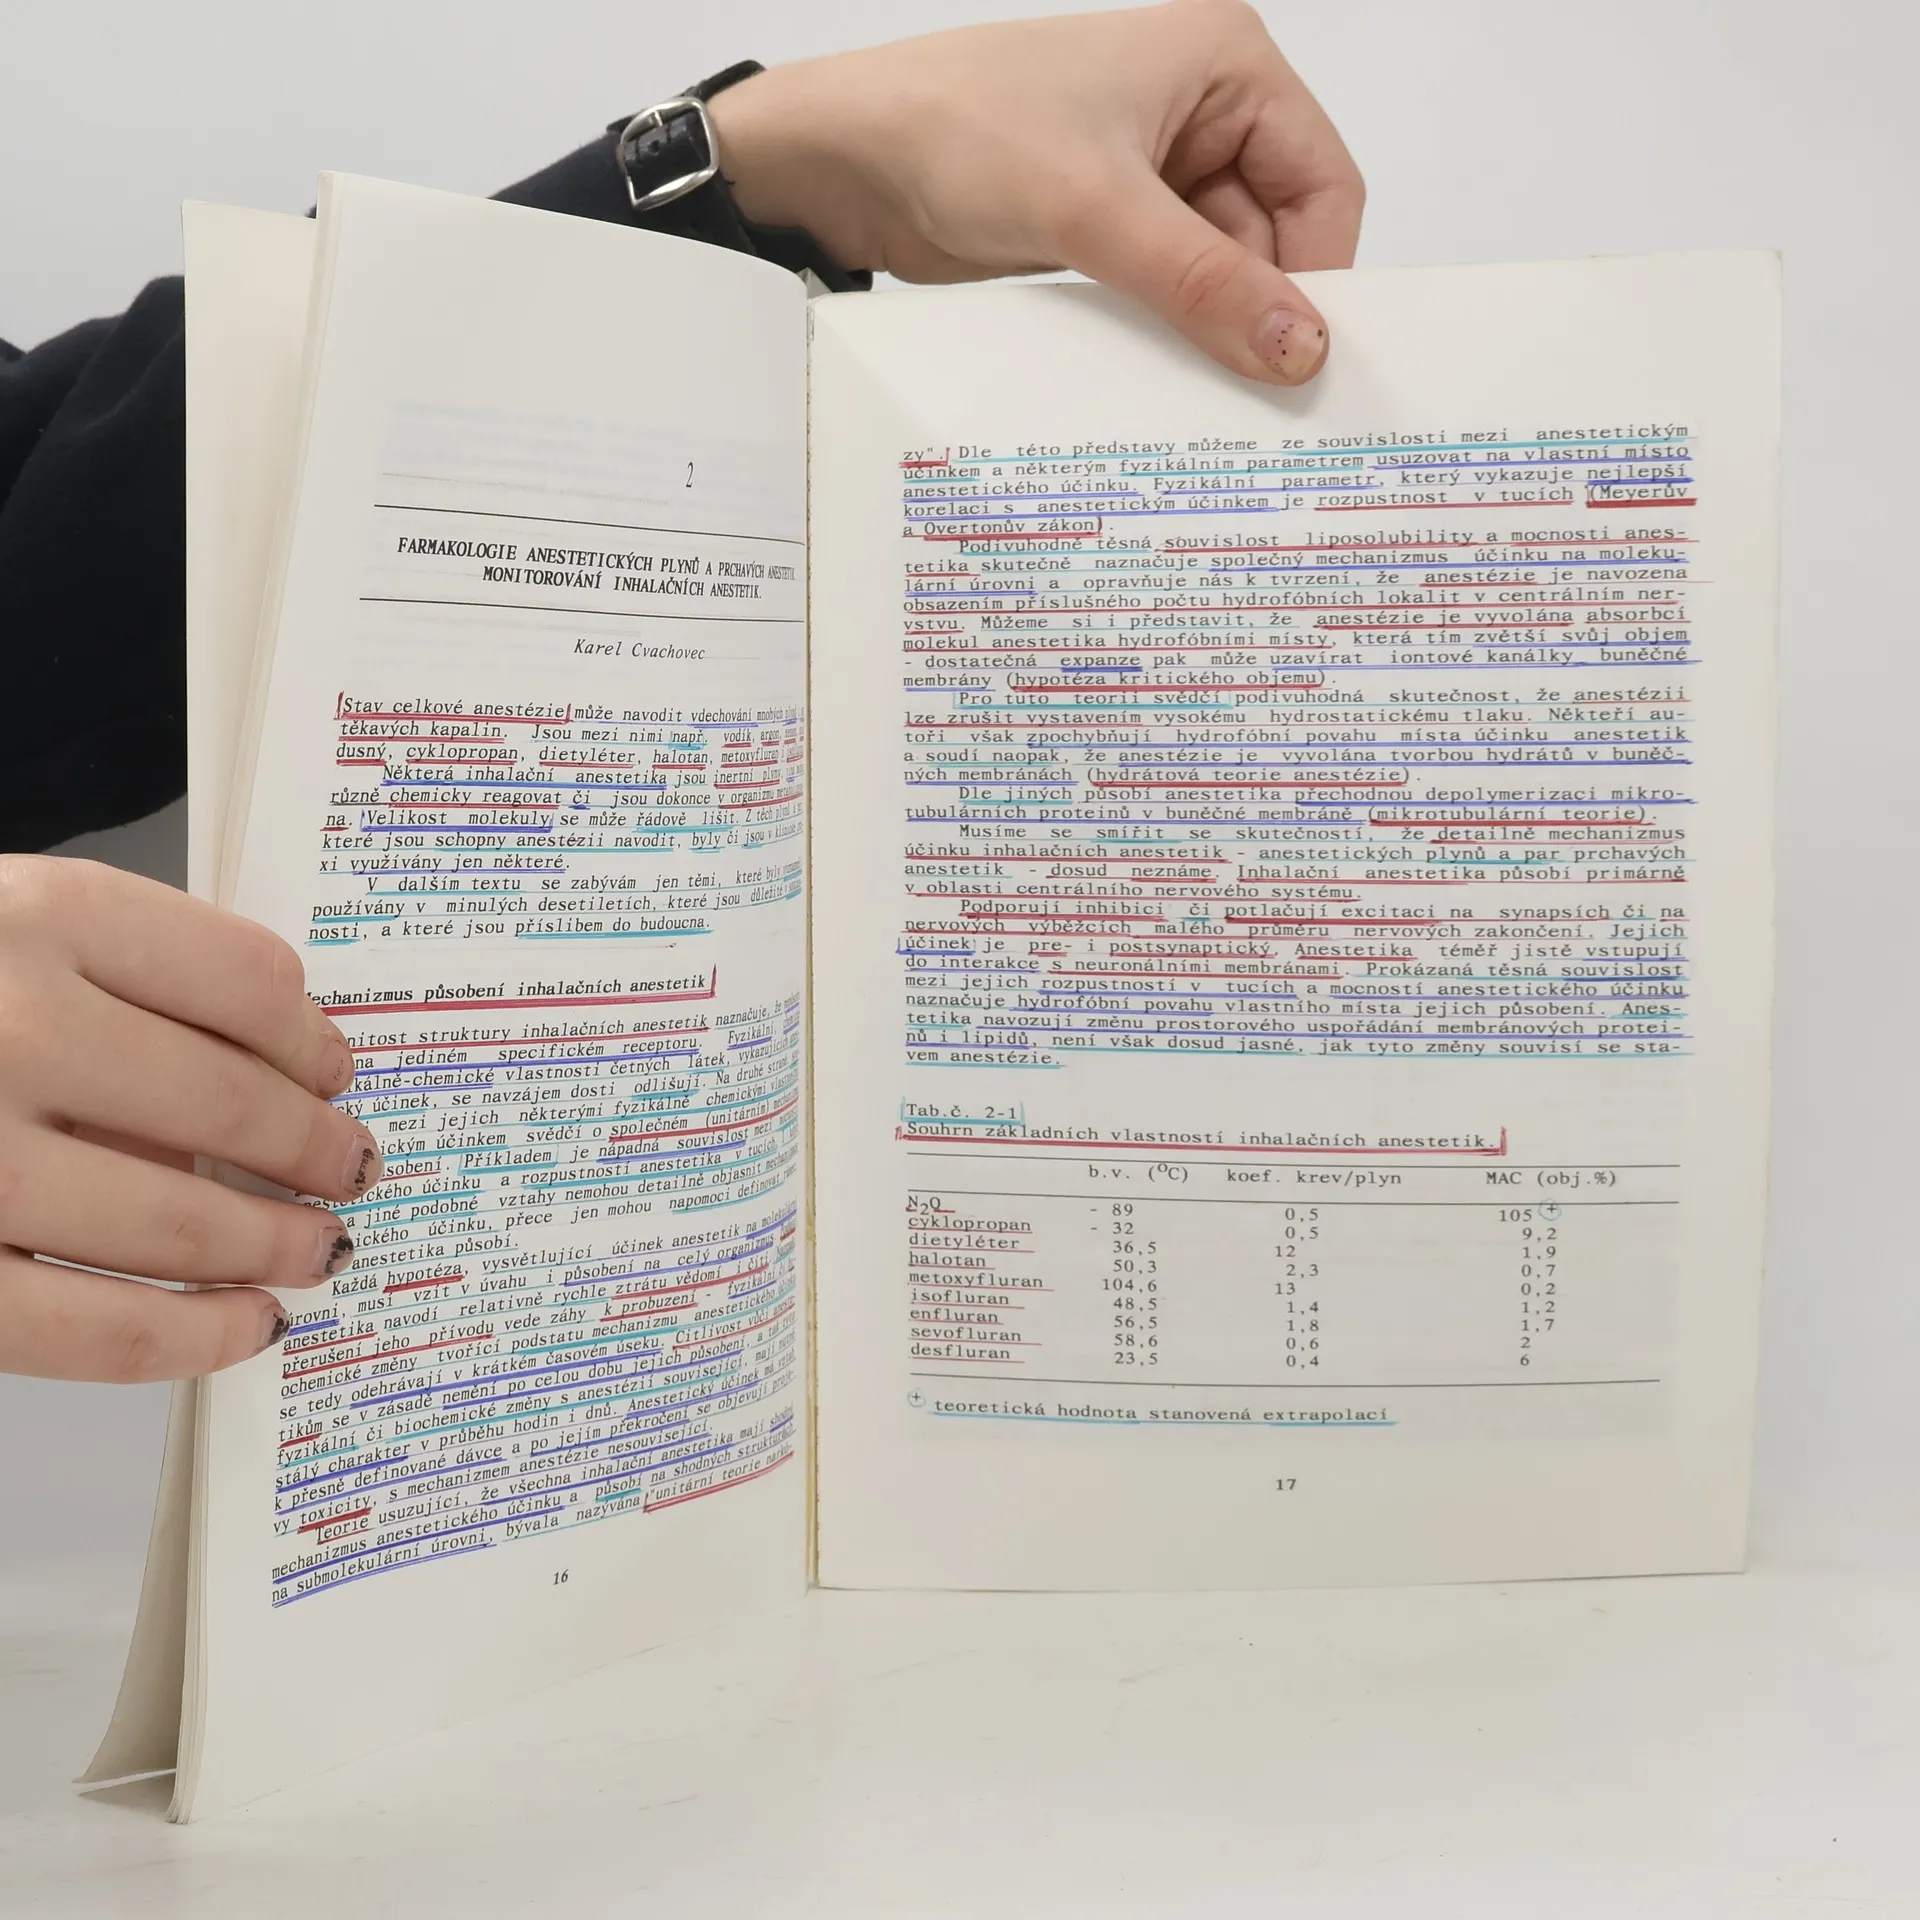 2
FARMAKOLOGIE ANESTETICKÝCH PLYNŮ A PRCHAVÝCH
MONITOROVÁNÍ INHALAČNÍCH ANESTETIK.
Karel Cvachovec
Stav celkové anestézie může navodit vdechování mnohých
těkavých kapalin. Jsou mezi nimi např. vodík, argon,
dusný, cyklopropan, dietyléter, halotan, metoxyfluran
Některá inhalační anestetika jsou inertní plyny,
různě chemicky reagovat či jsou dokonce v organizmu
na. Velikost molekuly se může řádově lišit. Z těch
které jsou schopny anestézii navodit, byly či jsou v
xi využívány jen některé.
V dalším textu se zabývám jen těmi, které byly
používány v minulých desetiletích, které jsou důležité v
nosti, a které jsou příslibem do budoucna.
Mechanizmus působení inhalačních anestetik
struktury inhalačních anestetik naznačuje, že
na jediném specifickém receptoru. Fyzikální,
vlastnosti četných látek, vykazujících
účinek, se navzájem dosti odlišují. Na druhé straně,
mezi jejich některými fyzikálně chemickými
účinkem svědčí o společném (unitárním)
Příkladem je nápadná souvislost mezi
účinku a rozpustností anestetika v tucích.
a jiné podobné vztahy nemohou detailně objasnit
účinku, přece jen mohou napomoci definovat
anestetika působí.
Každá hypotéza, vysvětlující účinek anestetik na molekulární
úrovni musí vzít v úvahu i působení na celý organizmus.
anestetika navodí relativně rychle ztrátu vědomí i čití.
přerušení jeho přívodu vede záhy k probuzení - fyzikální
ochemické změny tvořící podstatu mechanizmu anestetického účinku
se tedy odehrávají v krátkém časovém úseku. Citlivost vůči
tikům se v zásadě nemění po celou dobu jejich působení, a tak
fyzikální či biochemické změny s anestézií související, mají
stálý charakter v průběhu hodin i dnů. Anestetický účinek má
k přesně definované dávce a po jejím překročení se objevují
vy toxicity, s mechanizmem anestézie nesouvisející.
Teorie usuzující, že všechna inhalační anestetika mají shodný
mechanizmus anestetického účinku a působí na shodných strukturách
na submolekulární úrovni, bývala nazývána "unitární teorie narkó-
16
zy". Dle této představy můžeme ze souvislosti mezi anestetickým
účinkem a některým fyzikálním parametrem usuzovat na vlastní místo
anestetického účinku. Fyzikální parametr, který vykazuje nejlepší
korelaci s anestetickým účinkem je rozpustnost v tucích (Meyerův
a Overtonův zákon).
Podivuhodně těsná souvislost liposolubility a mocnosti anes-
tetika skutečně naznačuje společný mechanizmus účinku na moleku-
lární úrovni a opravňuje nás k tvrzení, že anestézie je navozena
obsazením příslušného počtu hydrofóbních lokalit v centrálním ner-
vstvu. Můžeme si i představit, že anestézie je vyvolána absorbcí
molekul anestetika hydrofóbními místy, která tím zvětší svůj objem
- dostatečná expanze pak může uzavírat iontové kanálky buněčné
membrány (hypotéza kritického objemu).
Pro tuto teorii svědčí podivuhodná skutečnost, že anestézii
lze zrušit vystavením vysokému hydrostatickému tlaku. Někteří au-
toři však zpochybňují hydrofóbní povahu místa účinku anestetik
a soudí naopak, že anestézie je vyvolána tvorbou hydrátů v buněč-
ných membránách (hydrátová teorie anestézie).
Dle jiných působí anestetika přechodnou depolymerizaci mikro-
tubulárních proteinů v buněčné membráně (mikrotubulární teorie).
Musíme se smířit se skutečností, že detailně mechanizmus
účinku inhalačních anestetik - anestetických plynů a par prchavých
anestetik - dosud neznáme. Inhalační anestetika působí primárně
v oblasti centrálního nervového systému.
Podporují inhibici či potlačují excitaci na synapsích či na
nervových výběžcích malého průměru nervových zakončení. Jejich
účinek je pre- i postsynaptický. Anestetika téměř jistě vstupují
do interakce s neuronálními membránami. Prokázaná těsná souvislost
mezi jejich rozpustností v tucích a mocností anestetického účinku
naznačuje hydrofóbní povahu vlastního místa jejich působení. Anes-
tetika navozují změnu prostorového uspořádání membránových protei-
nů i lipidů, není však dosud jasné, jak tyto změny souvisí se sta-
vem anestézie.
Tab.č. 2-1
Souhrn základních vlastností inhalačních anestetik.
b.v. (°C) koef. krev/plyn MAC (obj.%)
N2O - 89 0,5 105 +
cyklopropan - 32 0,5 9,2
dietyléter 36,5 12 1,9
halotan 50,3 2,3 0,7
metoxyfluran 104,6 13 0,2
isofluran 48,5 1,4 1,2
enfluran 56,5 1,8 1,7
sevofluran 58,6 0,6 2
desfluran 23,5 0,4 6
+ teoretická hodnota stanovená extrapolací
17